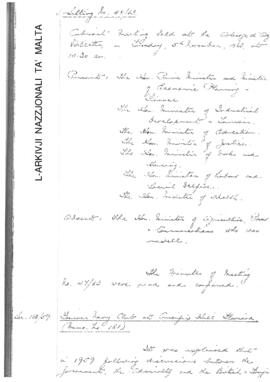 Sitting No. 48/63
Cabinet Meeting held at the
Valletta on Tuesday, 5th November, 1963, at
10.30 a.m.
Present: The Hon. Prime Minister and Minister
of Economic Planning &
Finance
The Hon. Minister of Industrial
Development & Tourism
The Hon. Minister of Education.
The Hon. Minister of Justice.
The Hon. Minister of Works and
Housing.
The Hon. Minister of Labour and
Social Welfare.
The Hon. Minister of Health.
Absent: The Hon. Minister of Agriculture, Power
& Communications who was
unwell.
The Minutes of Meeting
No. 47/63 were read and confirmed.
Navy Club at Hill Floriana
(Memo. No 181)
It was explained that
in 1959 following discussions between the
Government, the Admiralty and the British &
L-ARKIVJI NAZZJONALI TA' MALTA